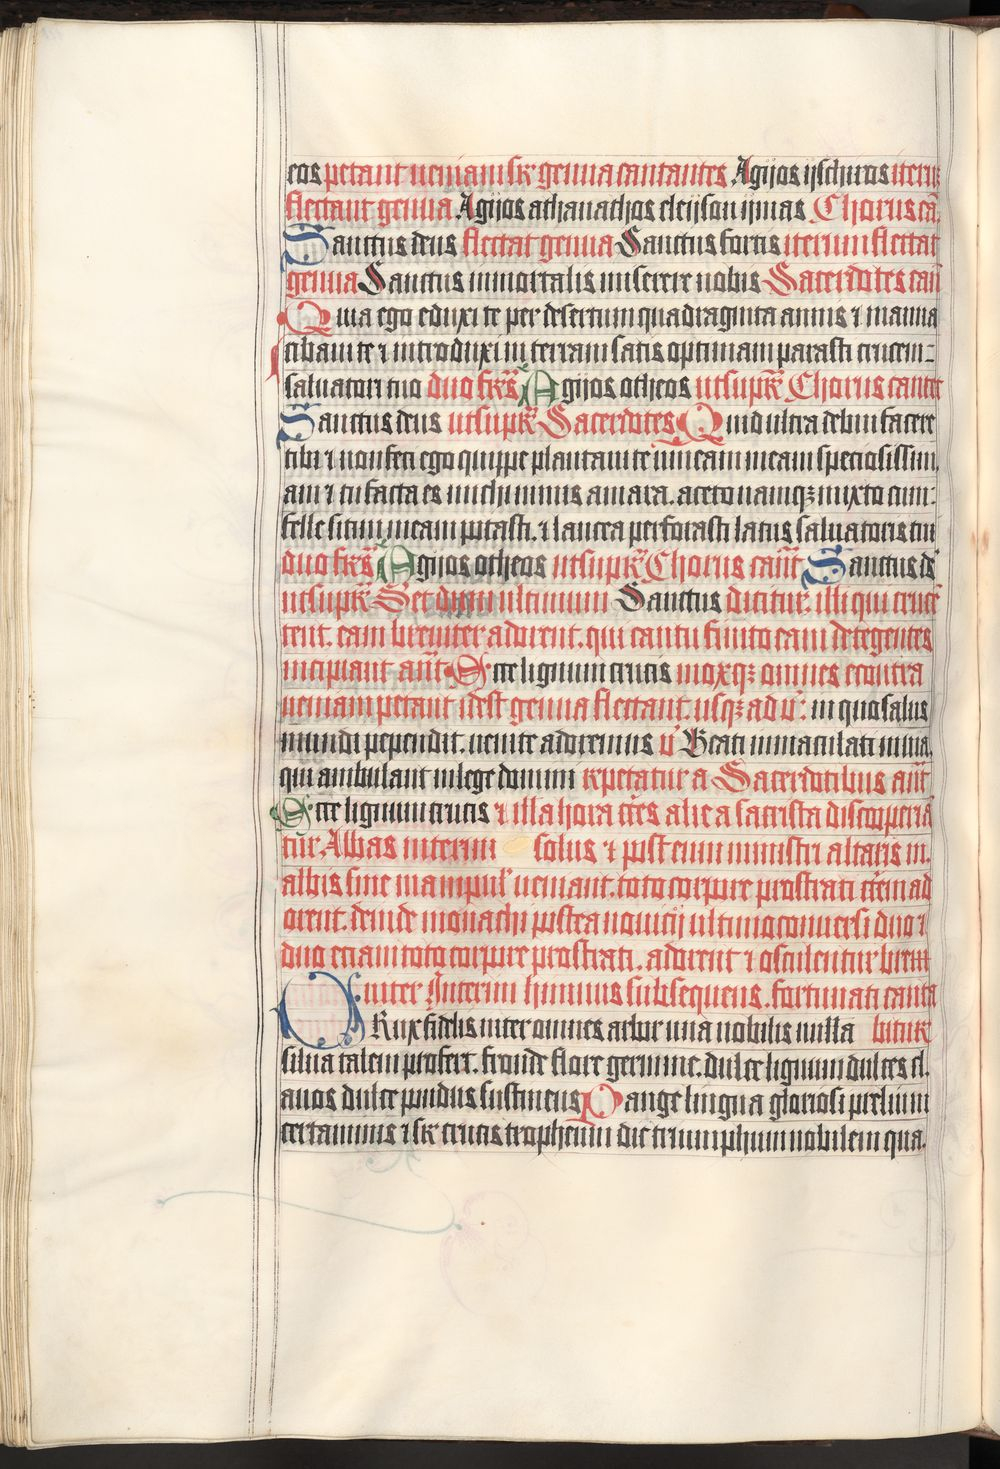 eos petant ueniam sic genua cantantes Agijos ijschiros iterū
flectant genua Agijos athanathos eleijson ijmas Chorus cā
Sanctus deus flectat genua Sanctus fortis iterum flectat
genua Sanctus immortalis miserere nobis Sacerdotes cañt
Quia ego eduxi te per desertum quadraginta annis ⁊ manna
cibaui te ⁊ introduxi in terram satis optimam parasti crucem
saluatori tuo duo frēs Agijos otheos utsup᷑ Chorus cantet
Sanctus deus utsup᷑ Sacerdotes Quid ultra debui facere
tibi ⁊ non feci ego quippe plantaui te uineam meam speciosissim
am ⁊ tu facta es michi nimis amara. aceto namqꝫ mixto cum
felle sitim meam potasti. ⁊ lancea perforasti latus saluatoris tui
duo frēs Agijos otheos utsup᷑ Chorus cañt Sanctus ds̄
utsup᷑ Set dum ultimum Sanctus dicitur. illi qui crucē
tent. eam breuiter adorent. qui cantu finito eam detegentes
incipiant añt Ecce lignum crucis moxqꝫ omnes econtra
ueniam petant idest genua flectant. usqꝫ ad ꝟ: in quo salus
mundi pependit. uenite adoremus ꝟ Beati immaculati in uia.
qui ambulant in lege domini repetatur a Sacerdotibus añt
Ecce lignum crucis ⁊ illa hora cēs alie a sacrista discooperiā
tur. Abbas interim solus ⁊ post eum ministri altaris in
albis sine manipul' ueniant. toto corpore prostrati crēm ad
orent. deinde monachi postea nouicij ultimo conuersi duo ⁊
duo etiam toto corpore prostrati. adorent ⁊ osculentur breui
uiter Interim himnus subsequens. fortunati canta
CRux fidelis inter omnes arbor una nobilis nulla bitur
silua talem profert. fronde flore germine. dulce lignum dulces cl
auos dulce pondus sustinens Pange lingua gloriosi prelium
certaminis ⁊ sr̄ crucis tropheum dic triumphum nobilem qua.